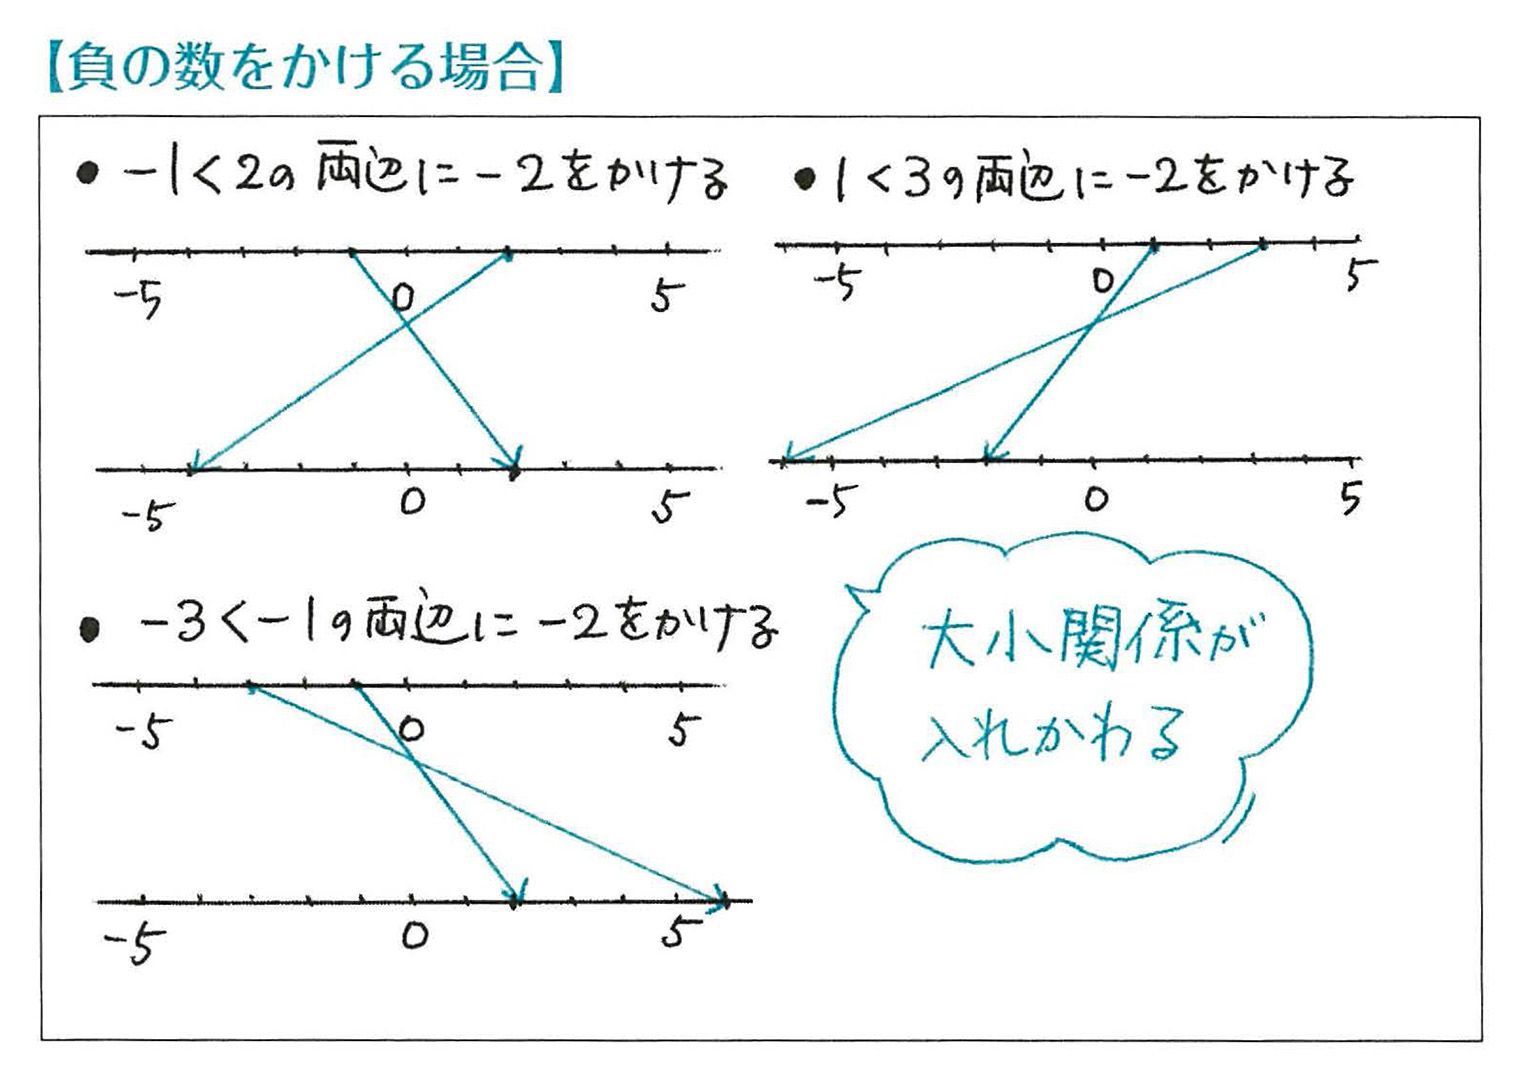 【負の数をかける場合】
● -1<2の両辺に-2をかける
-5 0 5
-5 0 5
● 1<3の両辺に-2をかける
-5 0 5
-5 0 5
● -3<-1の両辺に-2をかける
-5 0 5
-5 0 5
大小関係が
入れかわる